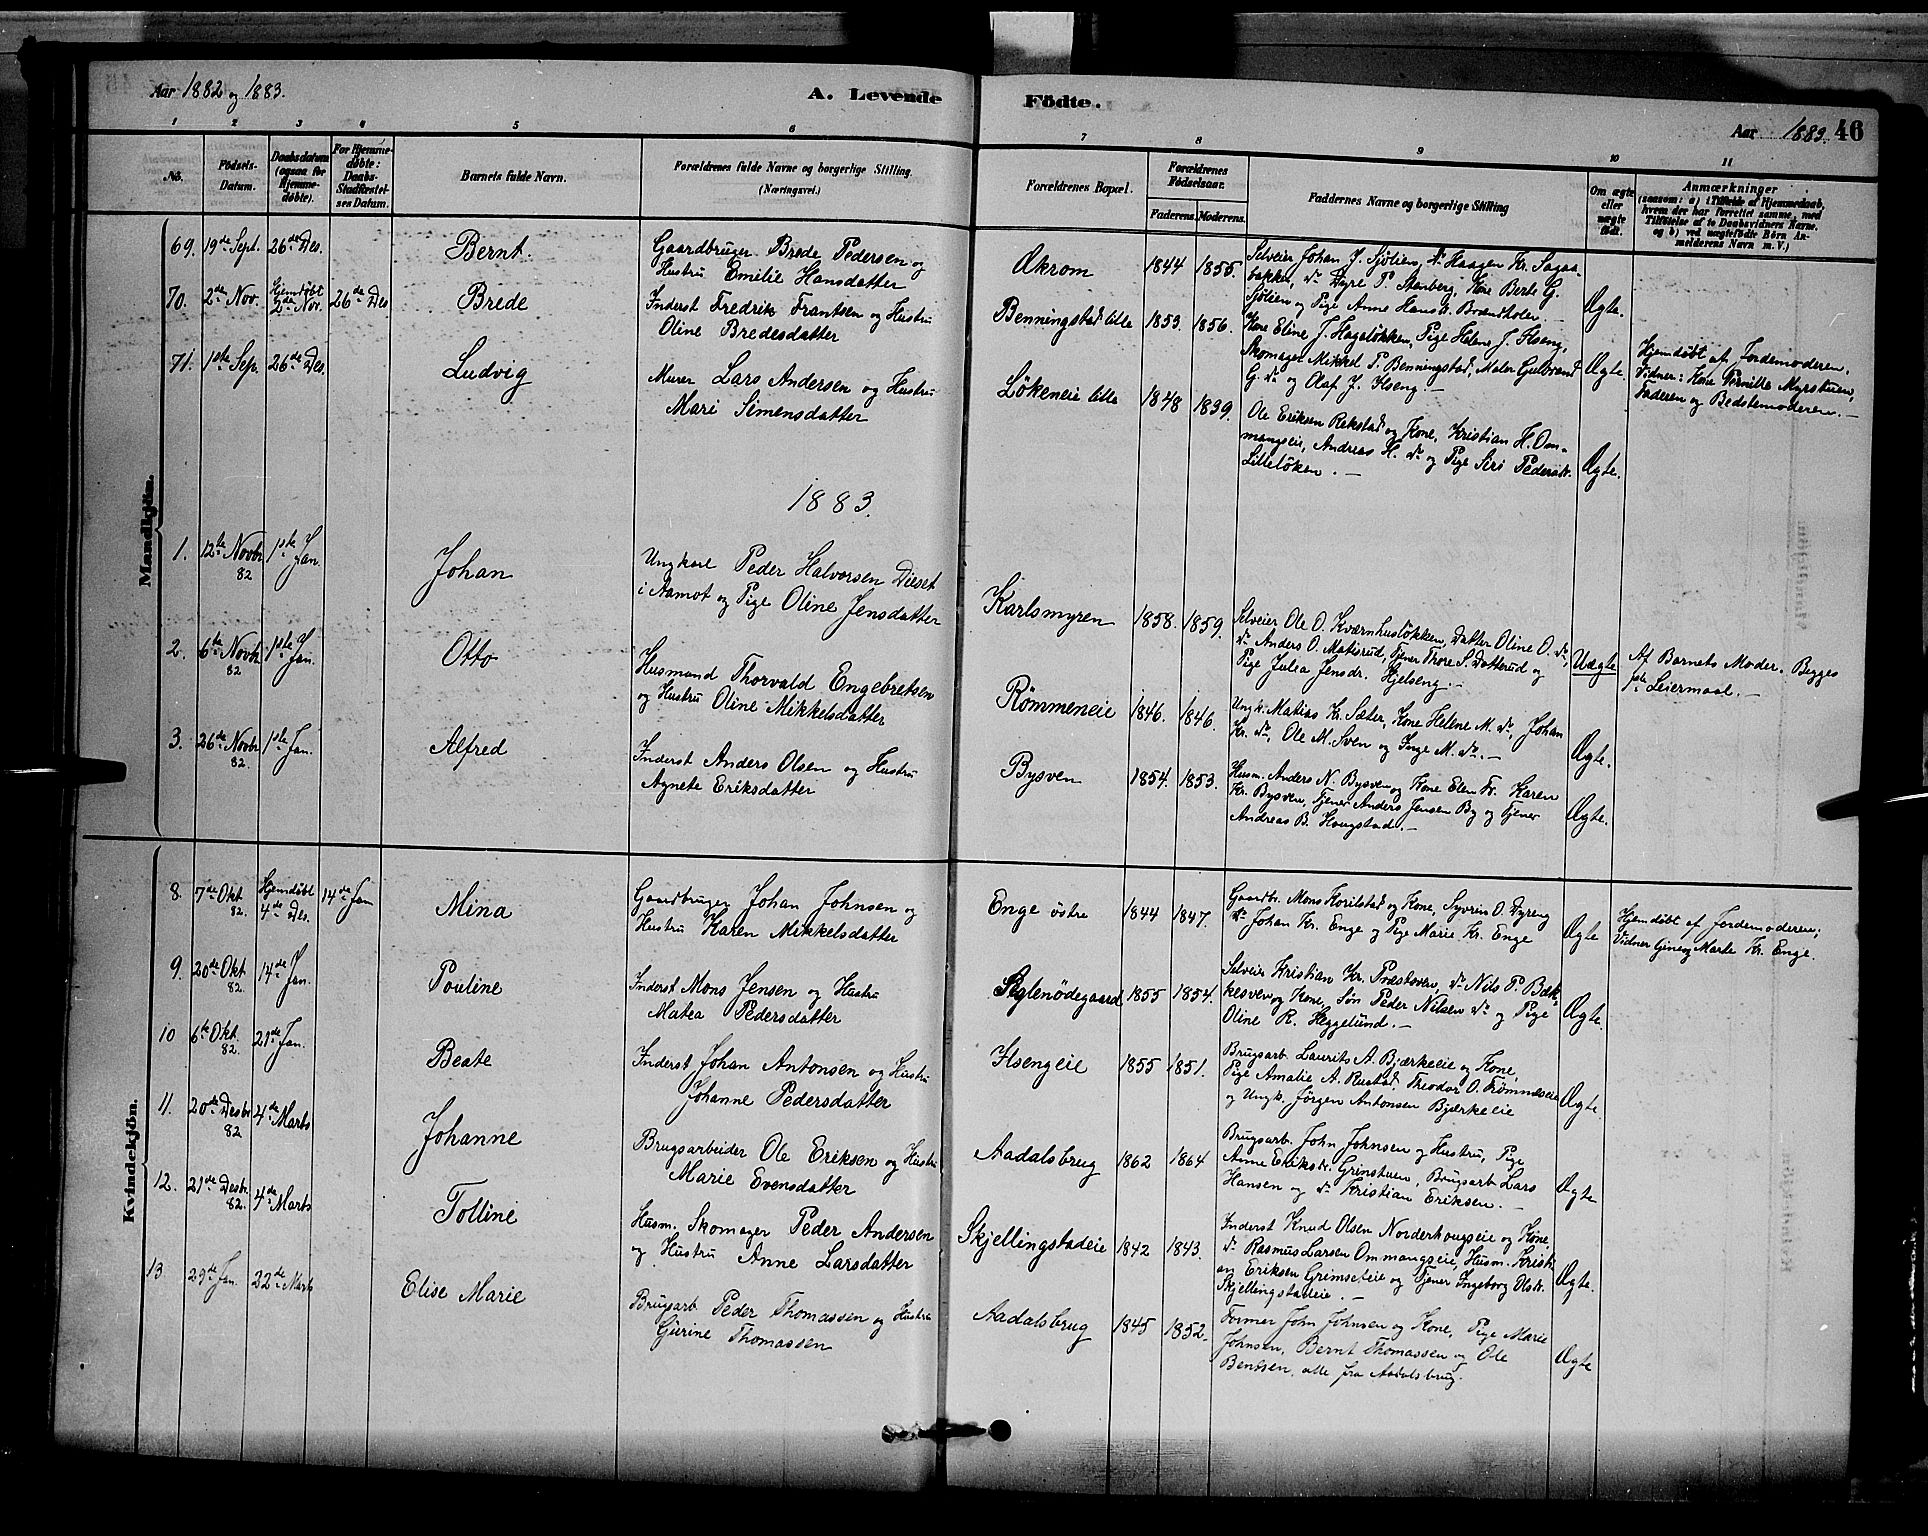 Aar 1882 og 1883.
A. Levende Födte.
Aar 1883. 46
1 2 3 4 5 6 7 8 9 10 11
No.
Födsels-Datum.
Daabsdatum (ogsaa for Hjemme-döbte).
For Hjemme-döbte: Daabs-Stadfæstel-ses Datum.
Barnets fulde Navn.
Forældrenes fulde Navne og borgerlige Stilling.
(Næringsvei.)
Forældrenes Bopæl.
Forældrenes Födselsaar.
Faderens. Moderens.
Faddernes Navne og borgerlige Stilling
Om ægte eller uægte födt.
Anmærkninger
(saasom: a) i Tilfælde af Hjemmedaab, hvem der har forrettet samme, med Tilföielse af to Daabsvidners Navne, og b) ved uægtefödte Börn Anmelderens Navn m. V.)
Mandkjön.
69. 19de Sept. 26de Des. Bernt. Gaardbruger Brede Pedersen og
Hustru Emilie Hansdatter
Økrom 1844 1855.
Selveier Johan J. Sjölien, do Haagen Kr. Sagaa-
bakke, do Dyre P. Stenberg, Kone Berte G.
Sjölien og Pige Anne Hansdr. Brændholen —
Ægte.
70. 2de Nov. Hjemdöbt 2de Nov. 26de Des Brede Inderst Fredrik Frantsen og Hustru
Oline Bredesdatter
Benningstad lille 1853. 1856.
Kone Eline J. Hagelökken, Pige Helene J. Ilseng,
Skomager Mikkel P. Benningstad, Maler Gulbrand
G. do og Olaf J. Ilseng. —
Ægte.
Hjemdöbt af Jordemoderen.
Vidner: Kone Pernille Myrstuen,
Faderen og Bedstemoderen. —
71. 1ste Sep. 26de Des. Ludvig Murer Lars Andersen og Hustru
Mari Simensdatter
Lökeneie lille 1848 1839.
Ole Eriksen Rekstad og Kone, Kristian H. Om-
mangseie, Andreas H. do og Pige Siri Pedersdr.
Lillelöken. —
Ægte.
1883.
1. 12te Novbr 82 1ste Jan. Johan Ungkarl Peder Halvorsen Dieset
i Aamot og Pige Oline Jensdatter
Karlsmyren 1858. 1859.
Selveier Ole O. Kværnhuslökken, Datter Oline O. do,
do Anders O. Matisrud, Tjener Thore S. Dotterud og
Pige Julea Jensdr. Hjelseng. —
Uægte
Af Barnets Moder. Begges
1ste Leiermaal. —
2. 6te Novbr 82 1ste Jan. Otto Husmand Thorvald Engebretsen
og Hustru Oline Mikkelsdatter
Römmeneie 1846. 1846.
Ungk. Matias Kr. Sæter, Kone Helene M. do, Johan
Kr. do, Ole M. Sven og Inge M. do. —
Ægte.
3. 26de Novbr 82. 1ste Jan. Alfred Inderst Anders Olsen og Hustru
Agnete Eriksdatter
Bysven 1854. 1853.
Husm. Anders N. Bysven og Kone Elen Fr. Karen
Kr. Bysven, Tjener Anders Jensen By og Tjener
Andreas B. Hougstad. —
Ægte.
Kvindekjön.
8. 7de Okt. 82. Hjemdöbt 4de Des. 14de Jan Mina Gaardbruger Johan Johnsen og
Hustru Karen Mikkelsdatter
Enge östre 1844 1847.
Gaardbr. Mons Korilstad og Kone, Syverin O. Dyreng
do Johan Kr. Enge og Pige Marie Kr. Enge
Ægte
Hjemdöbt af Jordemoderen;
Vidner Gine og Marte Kr. Enge.
9. 20de Okt. 82 14de Jan. Pouline Inderst Mons Jensen og Hustru
Matea Pedersdatter
Aglenödegaard 1855 1854.
Selveier Kristian Kr. Præstsven, do Nils P. Bæk-
kesven og Kone, Sön Peder Nilsen do og Pige
Oline R. Heggelund. —
Ægte.
10 6te Okt. 82. 21de Jan. Beate Inderst Johan Antonsen og Hustru
Johanne Pedersdatter
Ilsengeie 1855 1851.
Brugsarb. Laurits A. Bjærkeeie og Kone,
Pige Amalie A. Rustad, Theodor O. Trömneseie
og Ungk. Jörgen Antonsen Bjærkeeie
Ægte
11. 20de Desbr 82 4de Marts Johanne Brugsarbeider Ole Eriksen og Hustru
Marie Evensdatter
Aadalsbrug 1862 1864
Brugsarb. John Johnsen og Hustru, Pige
Anne Eriksdr. Grinstuen, Brugsarb Lars
Hansen og do Kristian Eriksen. —
Ægte
12. 21de Desbr. 82. 4de Marts Tolline Husm. Skomager Peder Andersen
og Hustru Anne Larsdatter
Skjellingstadeie 1842 1843.
Inderst Knud Olsen Norderhougseie og Kone,
do Rasmus Larsen Ommangseie, Husm. Kristi-
an Eriksen Grimseteie og Tjener Ingeborg Olsdr.
Skjellingstadeie. —
Ægte.
13 29de Jan. 22de Marts Elise Marie Brugsarb Peder Thomassen og Hustru
Gurine Thomassen
Aadalsbrug 1845 1852.
Former John Johnsen og Kone, Pige Marie
Johnsen, Bernt Thomassen og Ole
Bentsen, alle fra Aadalsbrug.
Ægte